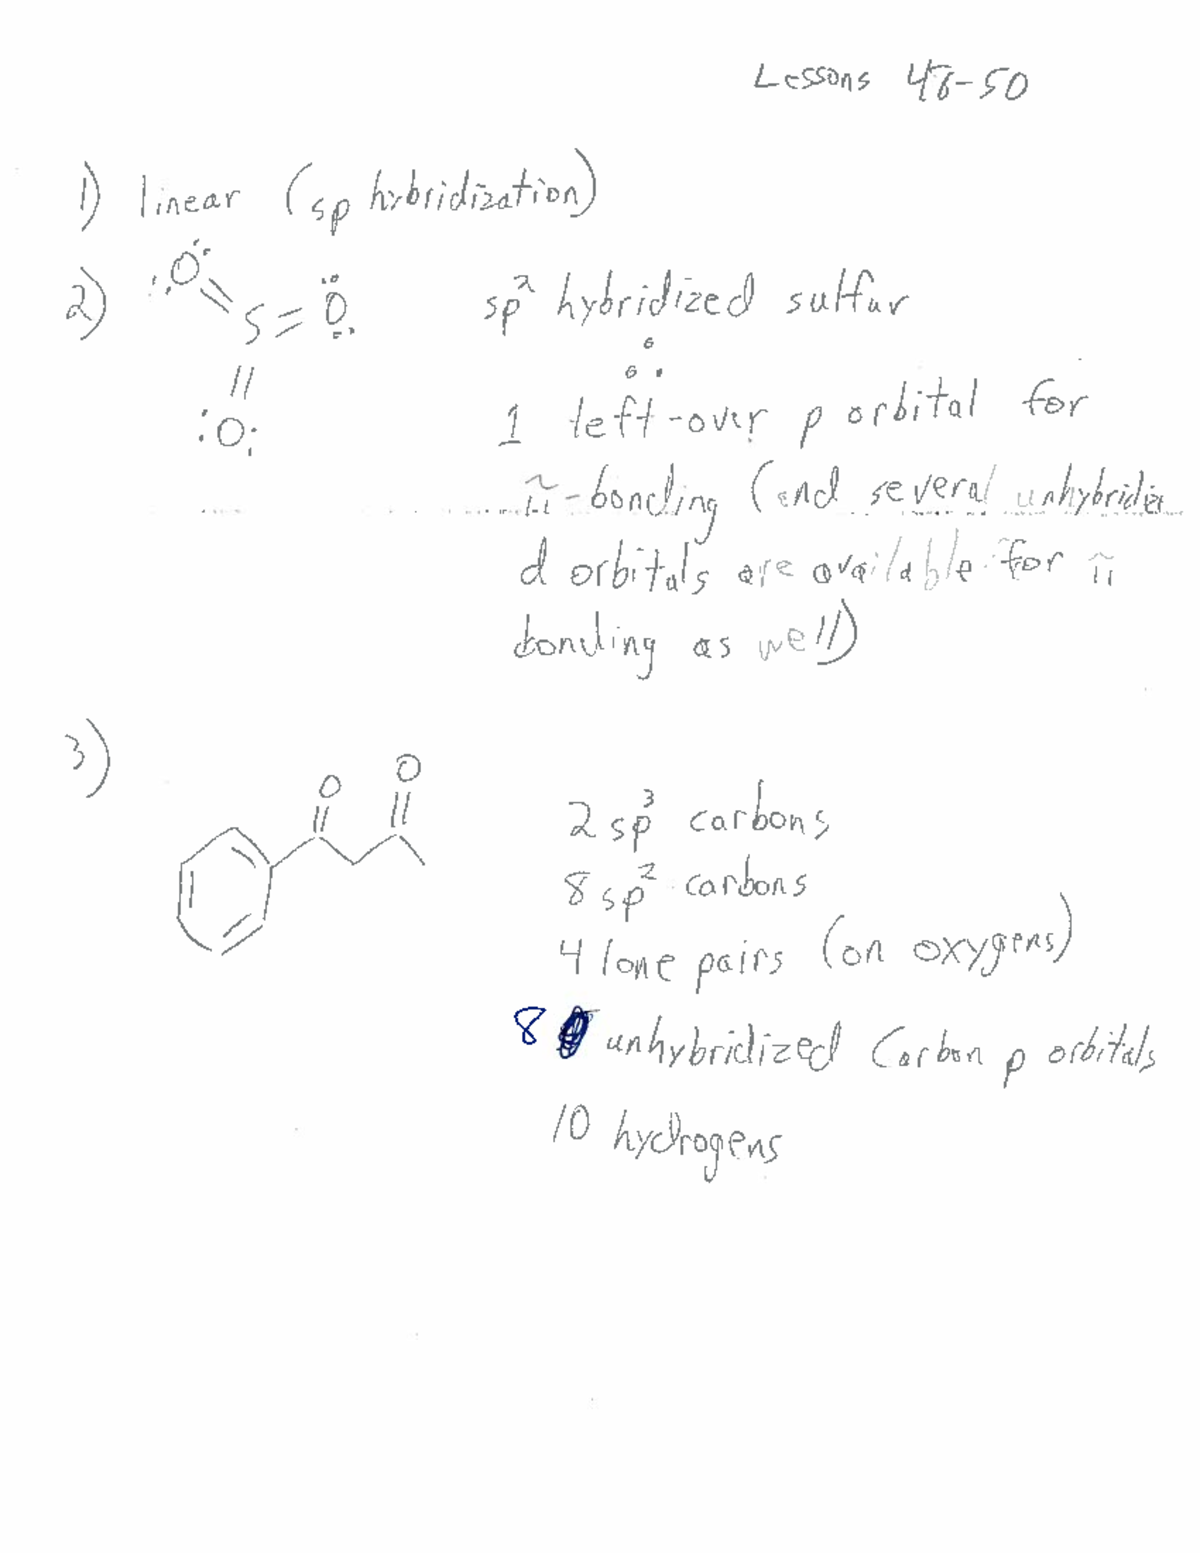 Lessons 48-50
1) linear (sp hybridization)
2) O S = O sp² hybridized sulfur
O
∴ 1 left-over p orbital for
π-bonding (and several unhybridiz
d orbitals are available for π
bonding as well)
3)
O O
2 sp³ carbons
8 sp² carbons
4 lone pairs (on oxygens)
8 unhybridized Carbon p orbitals
10 hydrogens